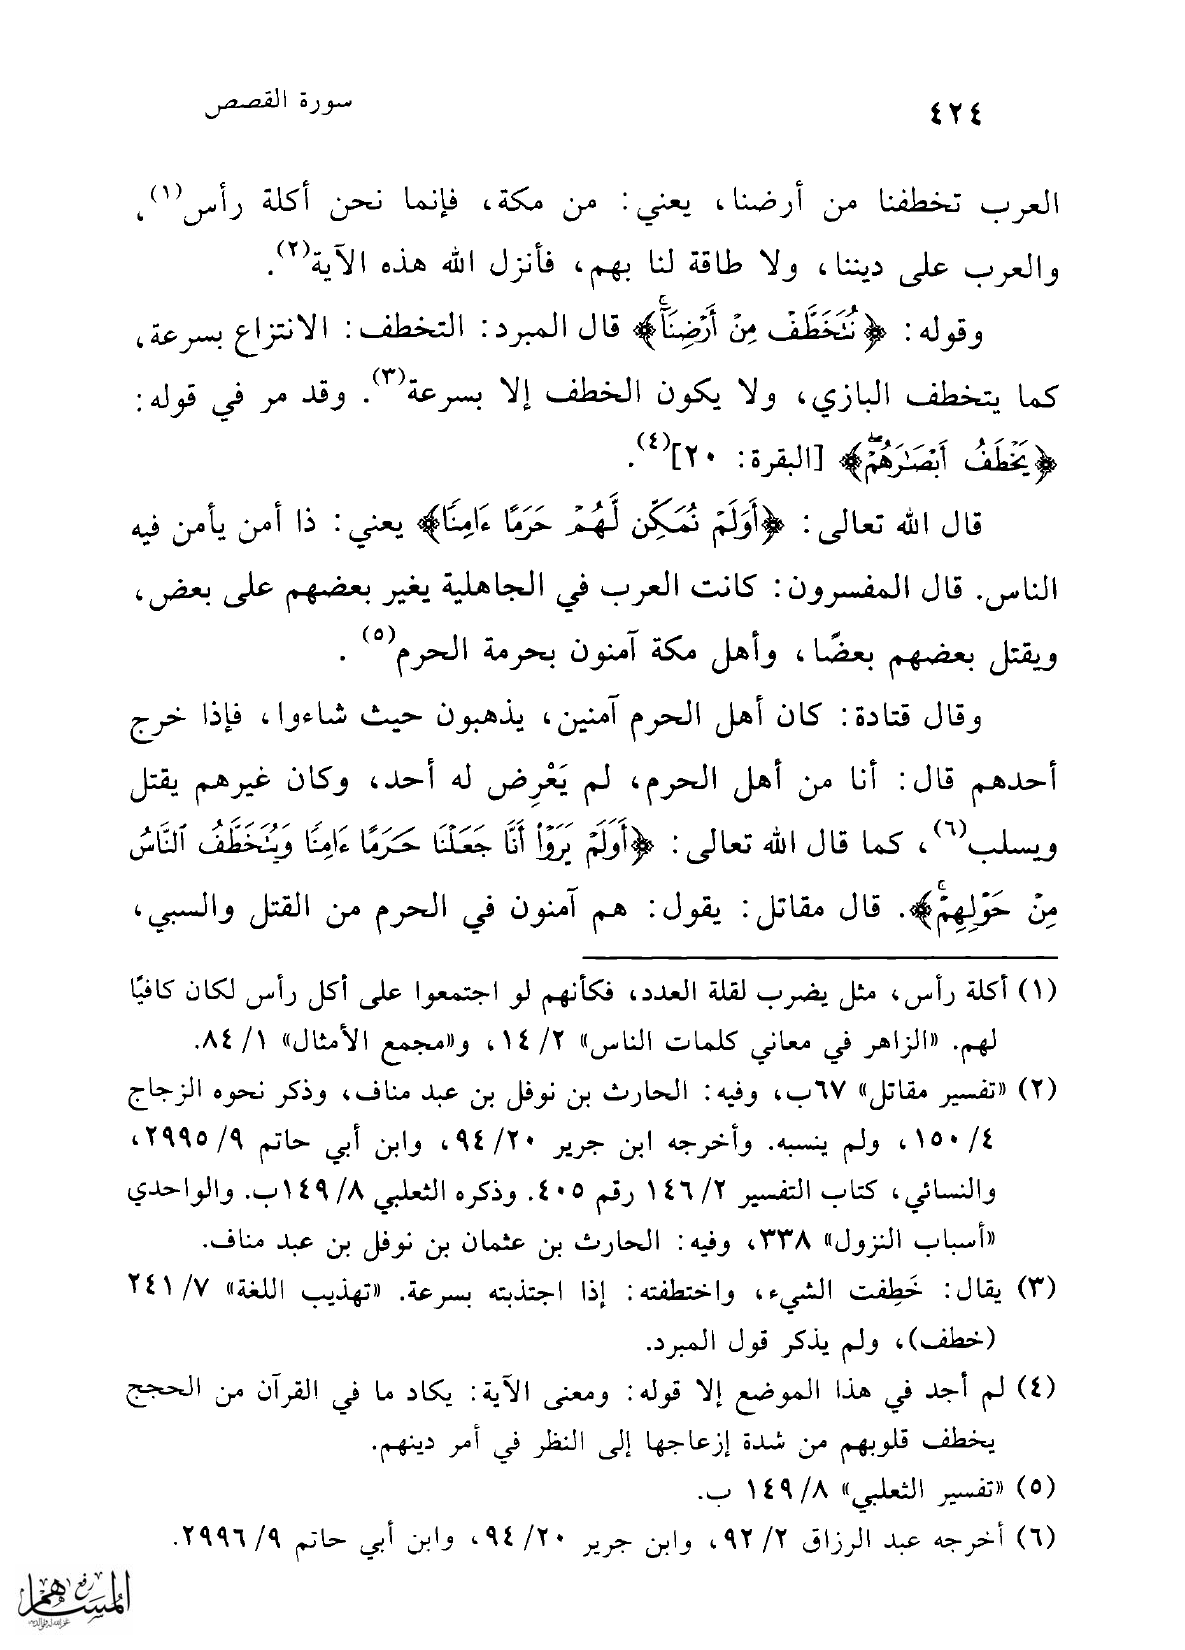 ٤٢٤
سورة القصص
العرب تخطفنا من أرضنا، يعني: من مكة، فإنما نحن أكلة رأس(١)،
والعرب على ديننا، ولا طاقة لنا بهم، فأنزل الله هذه الآية(٢).
وقوله: ﴿نُتَخَطَّفْ مِنْ أَرْضِنَآۚ﴾ قال المبرد: التخطف: الانتزاع بسرعة،
كما يتخطف البازي، ولا يكون الخطف إلا بسرعة(٣). وقد مر في قوله:
﴿يَخْطَفُ أَبْصَـٰرَهُمْۖ﴾ [البقرة: ٢٠](٤).
قال الله تعالى: ﴿أَوَلَمْ نُمَكِّن لَّهُمْ حَرَمًا ءَامِنًا﴾ يعني: ذا أمن يأمن فيه
الناس. قال المفسرون: كانت العرب في الجاهلية يغير بعضهم على بعض،
ويقتل بعضهم بعضًا، وأهل مكة آمنون بحرمة الحرم(٥).
وقال قتادة: كان أهل الحرم آمنين، يذهبون حيث شاءوا، فإذا خرج
أحدهم قال: أنا من أهل الحرم، لم يَعْرِض له أحد، وكان غيرهم يقتل
ويسلب(٦)، كما قال الله تعالى: ﴿أَوَلَمْ يَرَوْا۟ أَنَّا جَعَلْنَا حَرَمًا ءَامِنًا وَيُتَخَطَّفُ ٱلنَّاسُ
مِنْ حَوْلِهِمْۚ﴾. قال مقاتل: يقول: هم آمنون في الحرم من القتل والسبي،
(١) أكلة رأس، مثل يضرب لقلة العدد، فكأنهم لو اجتمعوا على أكل رأس لكان كافيًا
لهم. «الزاهر في معاني كلمات الناس» ٢/ ١٤، و«مجمع الأمثال» ١/ ٨٤.
(٢) «تفسير مقاتل» ٦٧ب، وفيه: الحارث بن نوفل بن عبد مناف، وذكر نحوه الزجاج
٤/ ١٥٠، ولم ينسبه. وأخرجه ابن جرير ٢٠/ ٩٤، وابن أبي حاتم ٩/ ٢٩٩٥،
والنسائي، كتاب التفسير ٢/ ١٤٦ رقم ٤٠٥. وذكره الثعلبي ٨/ ١٤٩ب. والواحدي
«أسباب النزول» ٣٣٨، وفيه: الحارث بن عثمان بن نوفل بن عبد مناف.
(٣) يقال: خَطِفت الشيء، واختطفته: إذا اجتذبته بسرعة. «تهذيب اللغة» ٧/ ٢٤١
(خطف)، ولم يذكر قول المبرد.
(٤) لم أجد في هذا الموضع إلا قوله: ومعنى الآية: يكاد ما في القرآن من الحجج
يخطف قلوبهم من شدة إزعاجها إلى النظر في أمر دينهم.
(٥) «تفسير الثعلبي» ٨/ ١٤٩ ب.
(٦) أخرجه عبد الرزاق ٢/ ٩٢، وابن جرير ٢٠/ ٩٤، وابن أبي حاتم ٩/ ٢٩٩٦.